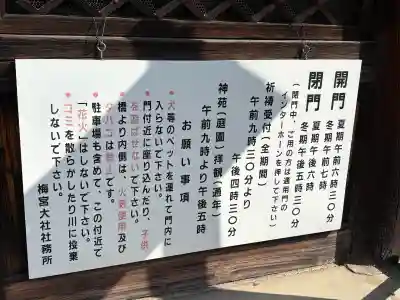 開門 夏期午前六時三〇分
冬期午前七時
閉門 夏期午後六時
冬期午後五時三〇分
(閉門中、ご用の方は通用門の
インターホーンを押して下さい)
祈祷受付(全期間)
午前九時三〇分より
午後四時三〇分
神苑(庭園)拝観(通年)
午前九時より午後五時
お願い事項
●犬等のペットを連れて門内に
入らないで下さい。
●門付近に座り込んだり、子供
を遊ばせないで下さい。
●橋より内側は、火器使用及び
タバコは禁止です。
●駐車場も含めて、この付近で
「花火」はしないで下さい。
●ゴミを散らかしたり川に投棄
しないで下さい。
梅宮大社社務所